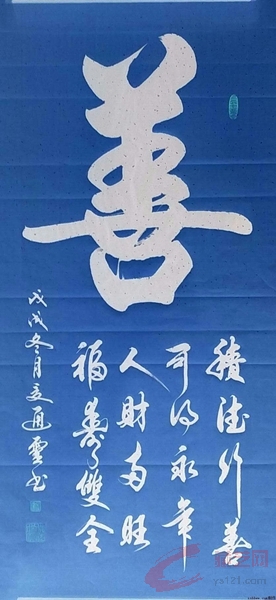 善
積德行善
可得永年
人財兩旺
福壽雙全
戊戌冬月 通 书